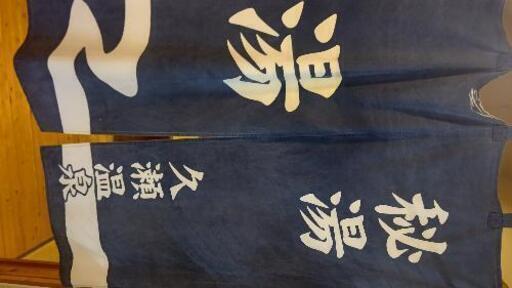 秘湯
久瀬温泉
湯